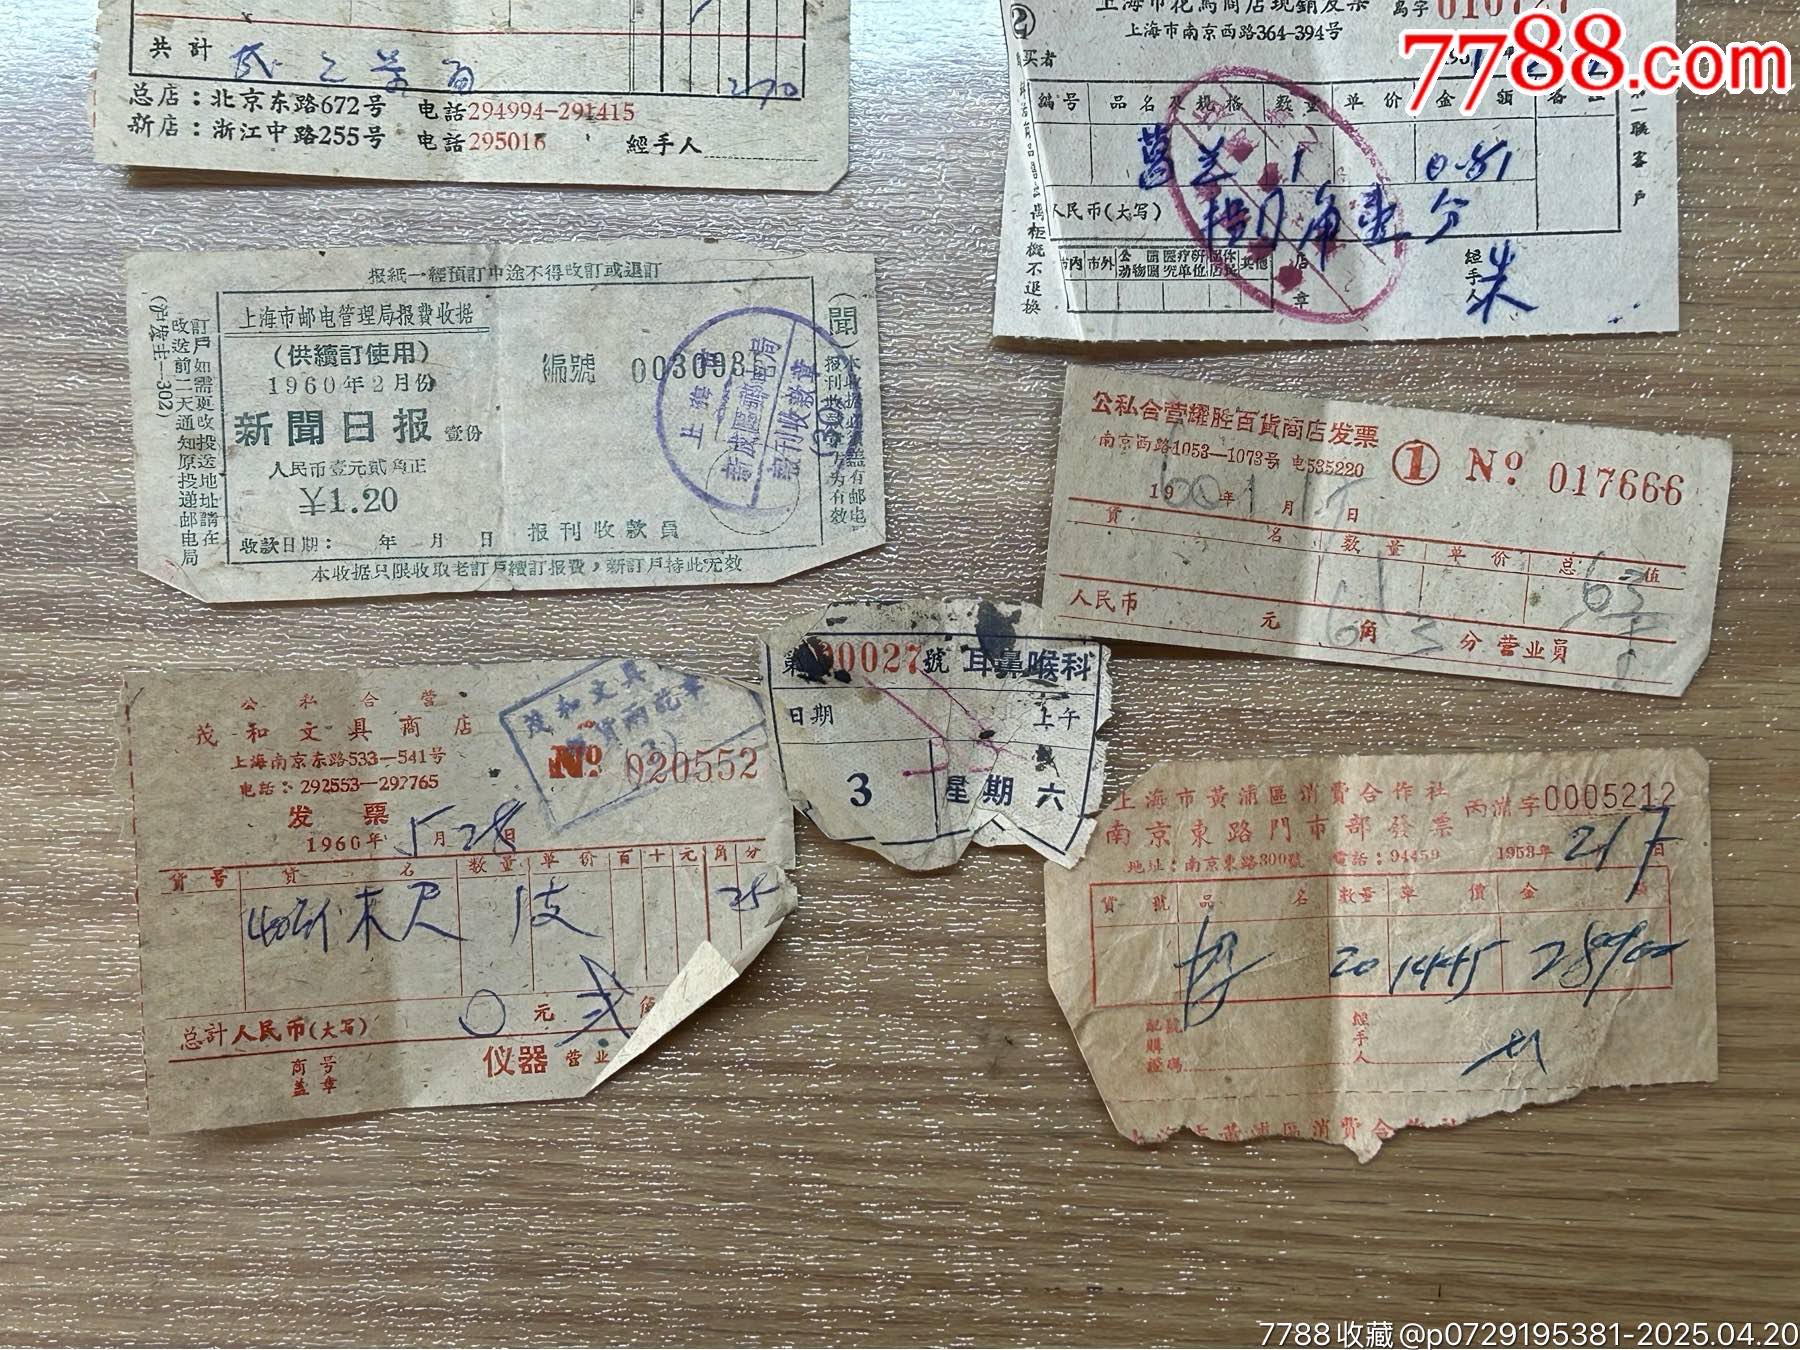 共計
270
总店：北京东路672号 电話294994-291415
新店：浙江中路255号 电話295016 經手人
②
上海市花鳥商店現銷发票
上海市南京西路364-394号
买者
編号 品名及規格 数量 单价 金額 备註
1 0.81
人民币(大写) 捌角壹分
市内 市外 公園动物園 医疗研究单位 团体居民 其他 店章
經手人 朱
第一联客戶
7788.com
报紙一經預訂中途不得改訂或退訂
上海市邮电管理局报費收据
(供續訂使用)
1960年2月份
新聞日报 壹份
人民币壹元貳角正
¥1.20
收款日期： 年 月 日
編號
报刊收款員
(聞)
本收据只限收取老訂戶續訂报費，新訂戶持此无效
訂戶如需更改投送地址請在
改送前二天通知原投遞邮电局
公私合营耀胜百貨商店发票
南京西路1053—1073号 电535220
① Nº 017666
1960年1月 日
貨名 数量 单价 总值
1 63
人民币 元 6角3分 营业員
公私合营
茂和文具商店
上海南京东路533—541号
电話：292553—292765
发票
1960年5月28日
Nº 020552
茂和文具
貨号 貨名 数量 单价 百十元角分
木尺 1支 25
总計人民币(大写) 0元
商号盖章
仪器 营业
第00027號 耳鼻喉科
日期 上午
3 星期六
上海市黃浦區消費合作社
南京東路門市部發票
丙浦字0005212
地址：南京東路300號 電話：94459 1953年 2 17日
貨號 品名 数量 單價 金額
20 1445 28900
配購證號碼
經手人
上海市黃浦區消費合作社
7788收藏@p0729195381-2025.04.20